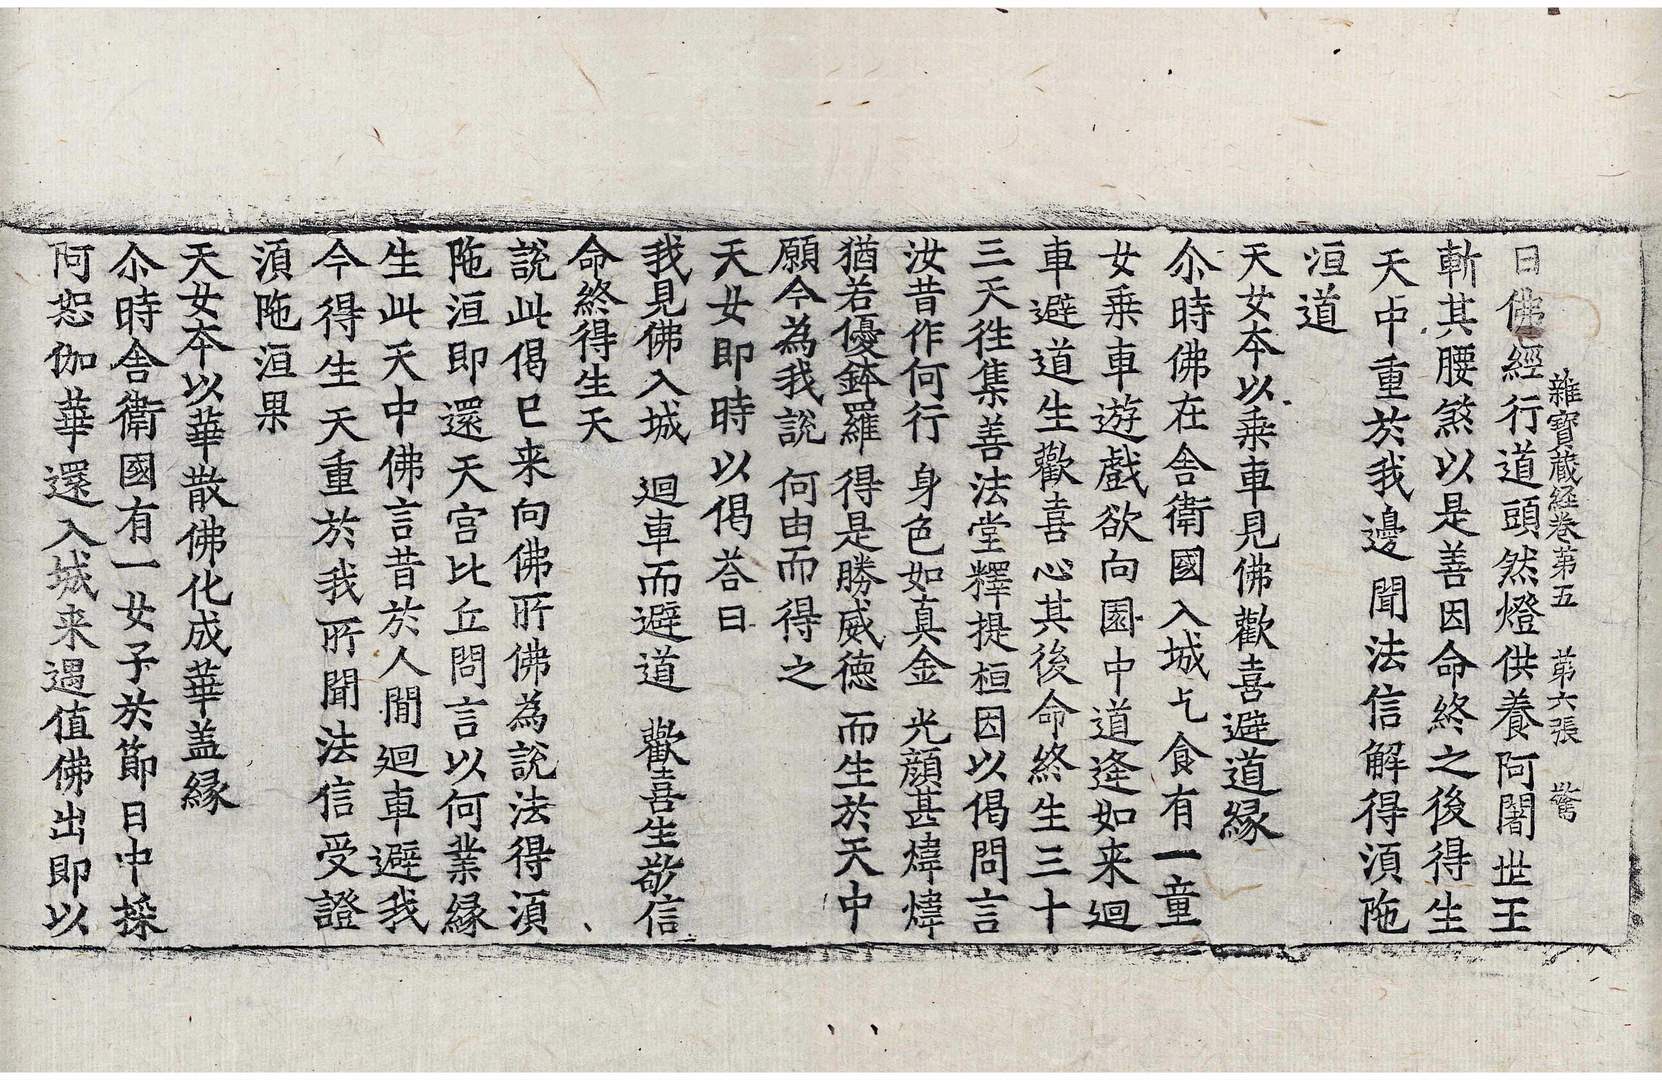 雜寶藏経卷第五 第六張 驚
日佛經行道頭然燈供養阿闍世王
斬其腰煞以是善因命終之後得生
天中重於我邊聞法信解得湏陁
洹道
天女夲以乗車見佛歡喜避道緣
尒時佛在舎衛國入城乞食有一童
女乗車遊戲欲向園中道逢如来迴
車避道生歡喜心其後命終生三十
三天往集善法堂釋提桓因以偈問言
汝昔作何行 身色如真金 光顔甚煒煒
猶若優鉢羅 得是勝威徳 而生於天中
願今為我說 何由而得之
天女即時以偈荅曰
我見佛入城 迴車而避道 歡喜生敬信
命終得生天
說此偈已来向佛所佛為說法得湏
陁洹即還天宫比丘問言以何業緣
生此天中佛言昔於人間迴車避我
今得生天重於我所聞法信受證
湏陁洹果
天女夲以華散佛化成華盖緣
尒時舎衛國有一女子扵節日中採
阿恕伽華還入城来遇值佛出即以